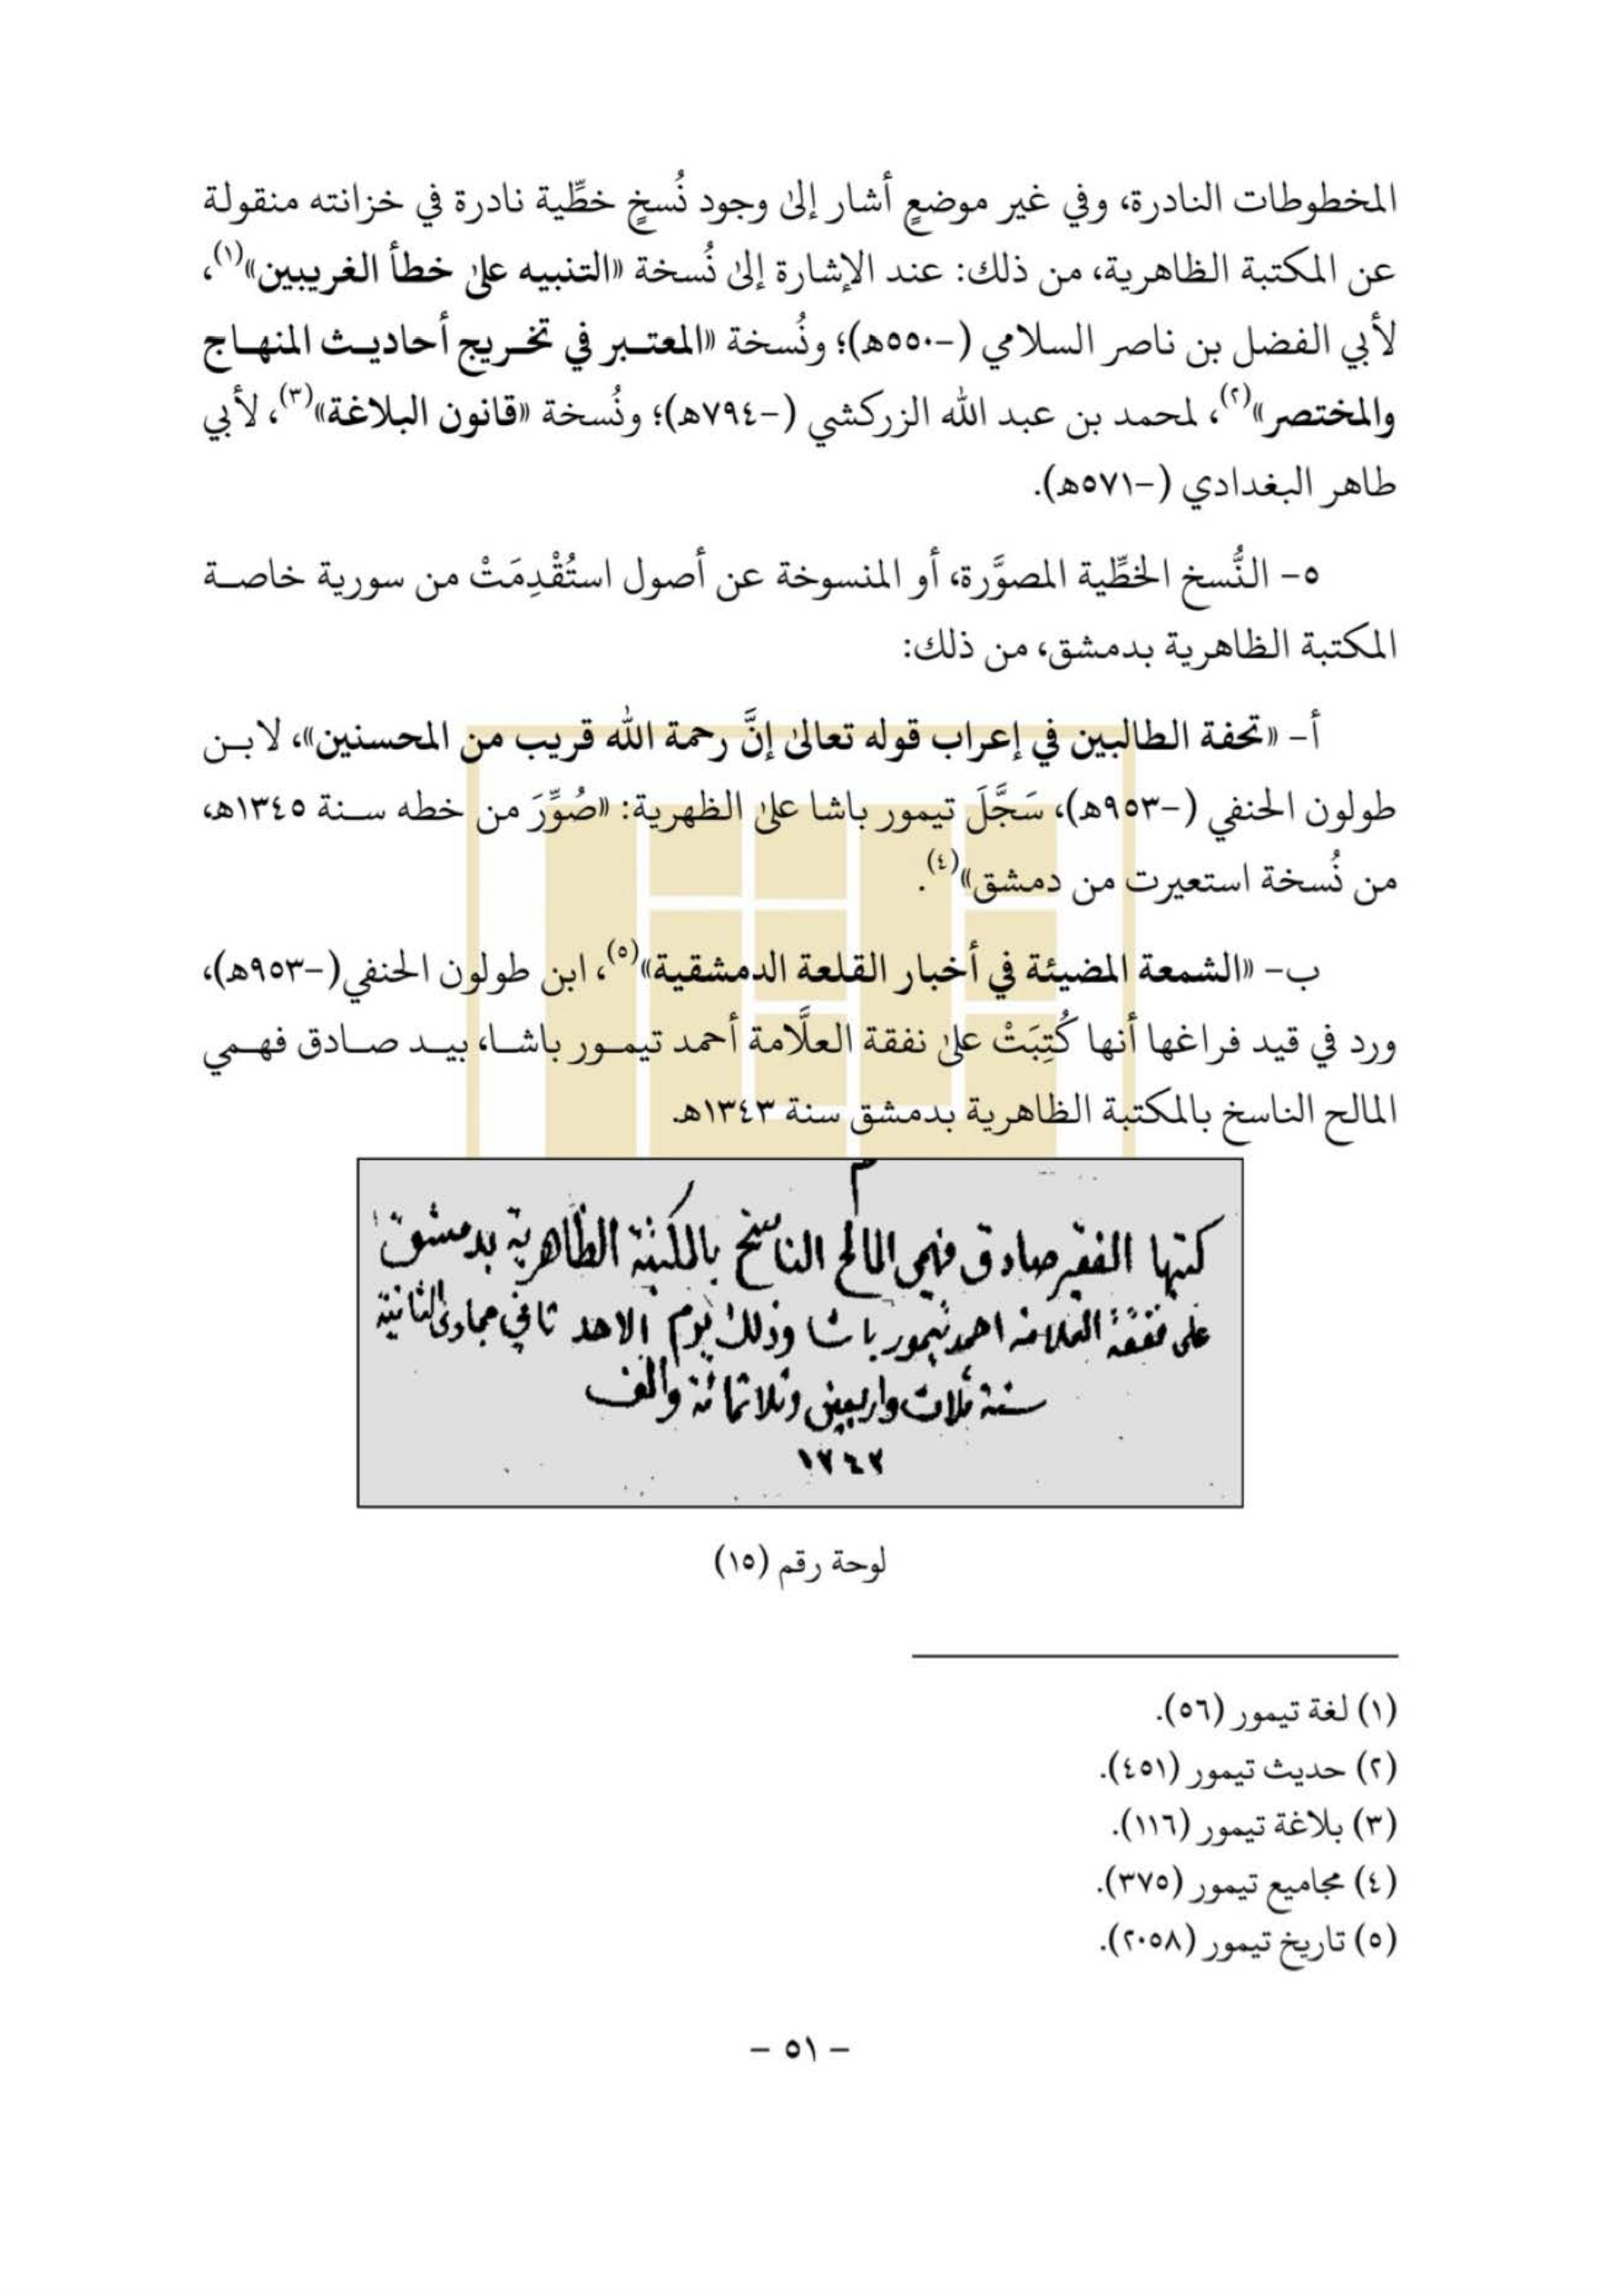 المخطوطات النادرة، وفي غير موضعٍ أشار إلى وجود نُسخٍ خطِّية نادرة في خزانته منقولة
عن المكتبة الظاهرية، من ذلك: عند الإشارة إلى نُسخة «التنبيه على خطأ الغريبين»(١)،
لأبي الفضل بن ناصر السلامي (-٥٥٠هـ)؛ ونُسخة «المعتبر في تخريج أحاديث المنهاج
والمختصر»(٢)، لمحمد بن عبد الله الزركشي (-٧٩٤هـ)؛ ونُسخة «قانون البلاغة»(٣)، لأبي
طاهر البغدادي (-٥٧١هـ).
٥- النُّسخ الخطِّية المصوَّرة، أو المنسوخة عن أصول استُقْدِمَتْ من سورية خاصة
المكتبة الظاهرية بدمشق، من ذلك:
أ- «تحفة الطالبين في إعراب قوله تعالى إنَّ رحمة الله قريب من المحسنين»، لابن
طولون الحنفي (-٩٥٣هـ)، سَجَّلَ تيمور باشا على الظهرية: «صُوِّرَ من خطه سنة ١٣٤٥هـ،
من نُسخة استعيرت من دمشق»(٤).
ب- «الشمعة المضيئة في أخبار القلعة الدمشقية»(٥)، ابن طولون الحنفي(-٩٥٣هـ)،
ورد في قيد فراغها أنها كُتِبَتْ على نفقة العلَّامة أحمد تيمور باشا، بيد صادق فهمي
المالح الناسخ بالمكتبة الظاهرية بدمشق سنة ١٣٤٣هـ.
م
كتبها الفقير صادق فهمي المالح الناسخ بالمكتبة الظاهرية بدمشق
على نفقة العلامة احمد تيمور باشا وذلك يوم الاحد ثاني جمادى الثانية
سنة ثلاث واربعين وثلاثمائة والف
١٣٤٣
لوحة رقم (١٥)
(١) لغة تيمور (٥٦).
(٢) حديث تيمور (٤٥١).
(٣) بلاغة تيمور (١١٦).
(٤) مجاميع تيمور (٣٧٥).
(٥) تاريخ تيمور (٢٠٥٨).
- ٥١ -